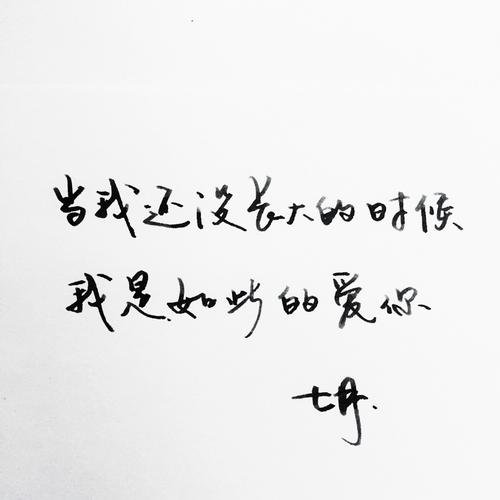 当我还没长大的时候
我是如些的爱你
七月.